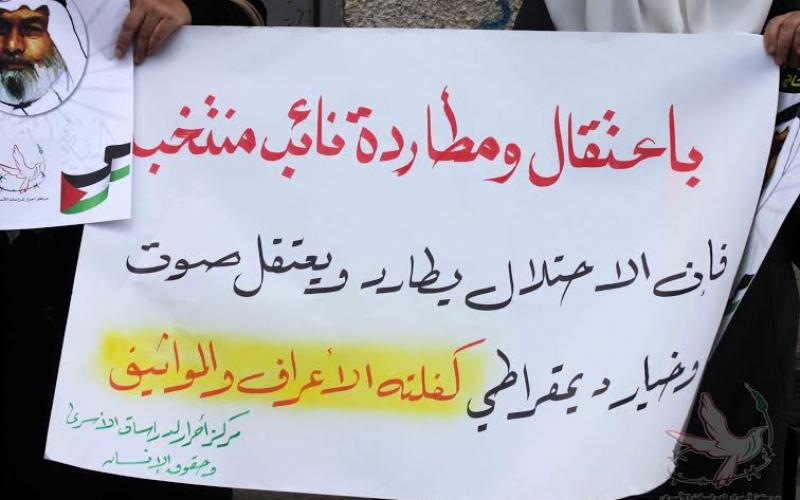 باعتقال ومطاردة نائب منتخب
فإن الاحتلال يطارد ويعتقل صوت
وخيار ديمقراطي كفلته الأعراف والمواثيق
مركز أحرار لدراسات الأسرى
وحقوق الإنسان